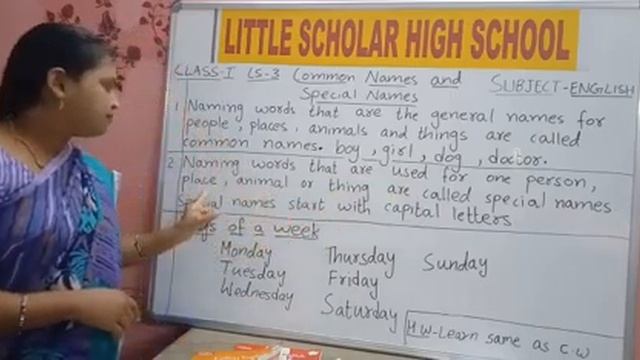 LITTLE SCHOLAR HIGH SCHOOL
CLASS-I LS-3 Common Names and Special Names
SUBJECT-ENGLISH
1 Naming words that are the general names for
people, places, animals and things are called
common names. boy, girl, dog, doctor.
2. Naming words that are used for one person,
place, animal or thing are called special names
names start with capital letters
of a week
Monday Thursday Sunday
Tuesday Friday
Wednesday Saturday
H.W-Learn same as C.W